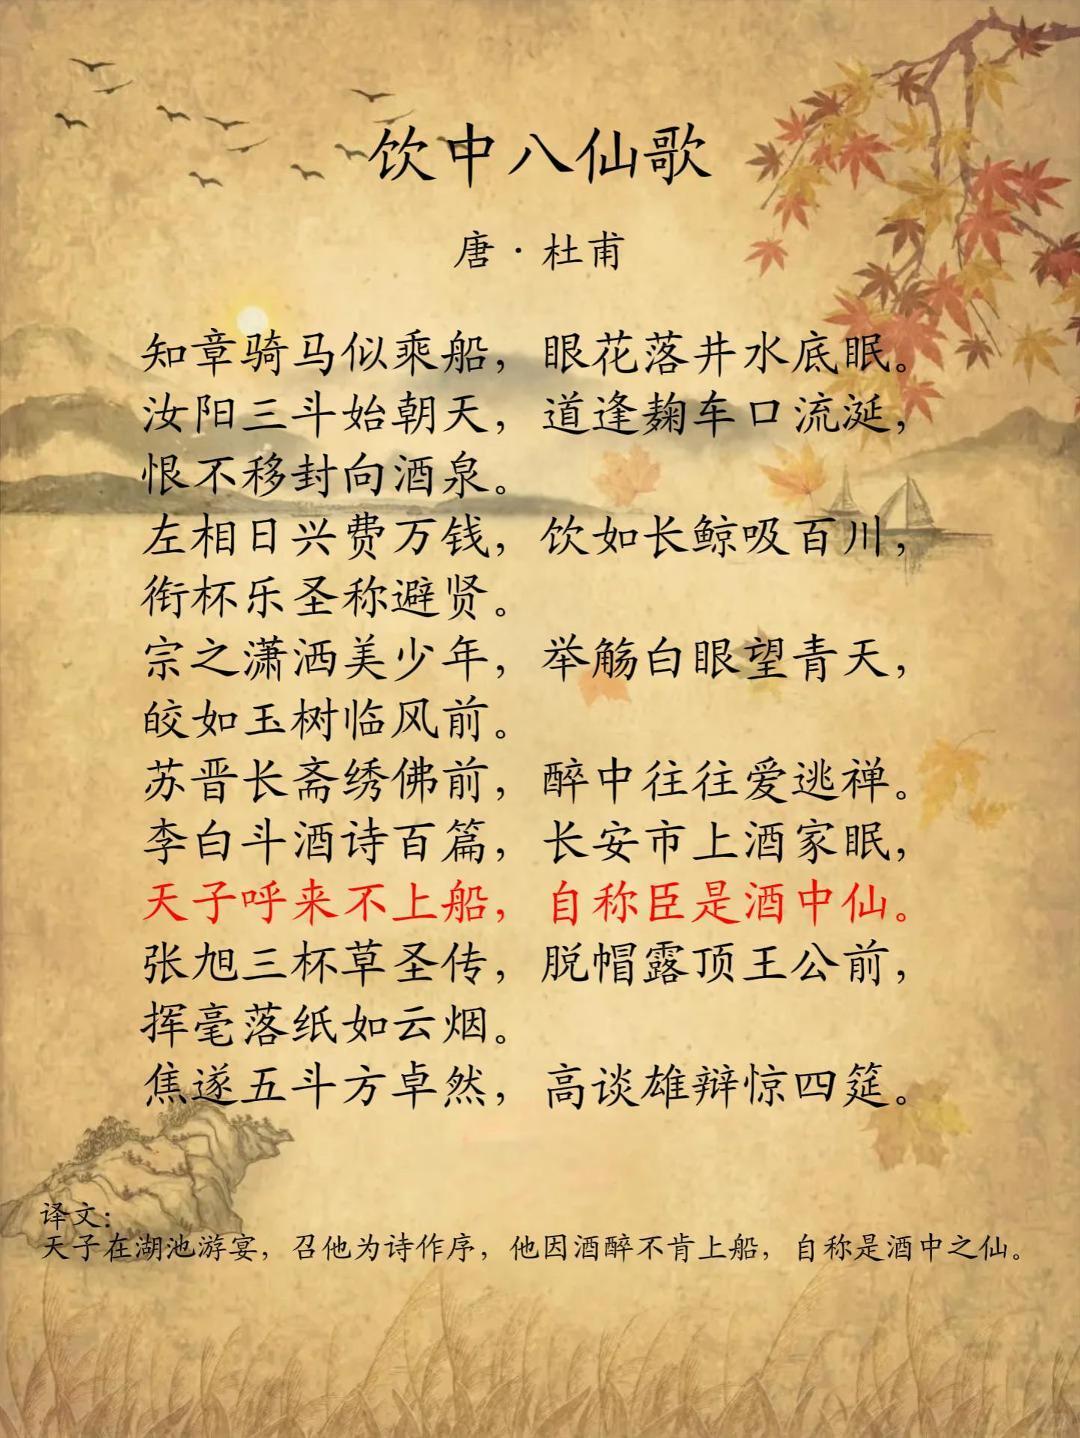 饮中八仙歌
唐·杜甫
知章骑马似乘船，眼花落井水底眠。
汝阳三斗始朝天，道逢麹车口流涎，
恨不移封向酒泉。
左相日兴费万钱，饮如长鲸吸百川，
衔杯乐圣称避贤。
宗之潇洒美少年，举觞白眼望青天，
皎如玉树临风前。
苏晋长斋绣佛前，醉中往往爱逃禅。
李白斗酒诗百篇，长安市上酒家眠，
天子呼来不上船，自称臣是酒中仙。
张旭三杯草圣传，脱帽露顶王公前，
挥毫落纸如云烟。
焦遂五斗方卓然，高谈雄辩惊四筵。
译文：
天子在湖池游宴，召他为诗作序，他因酒醉不肯上船，自称是酒中之仙。